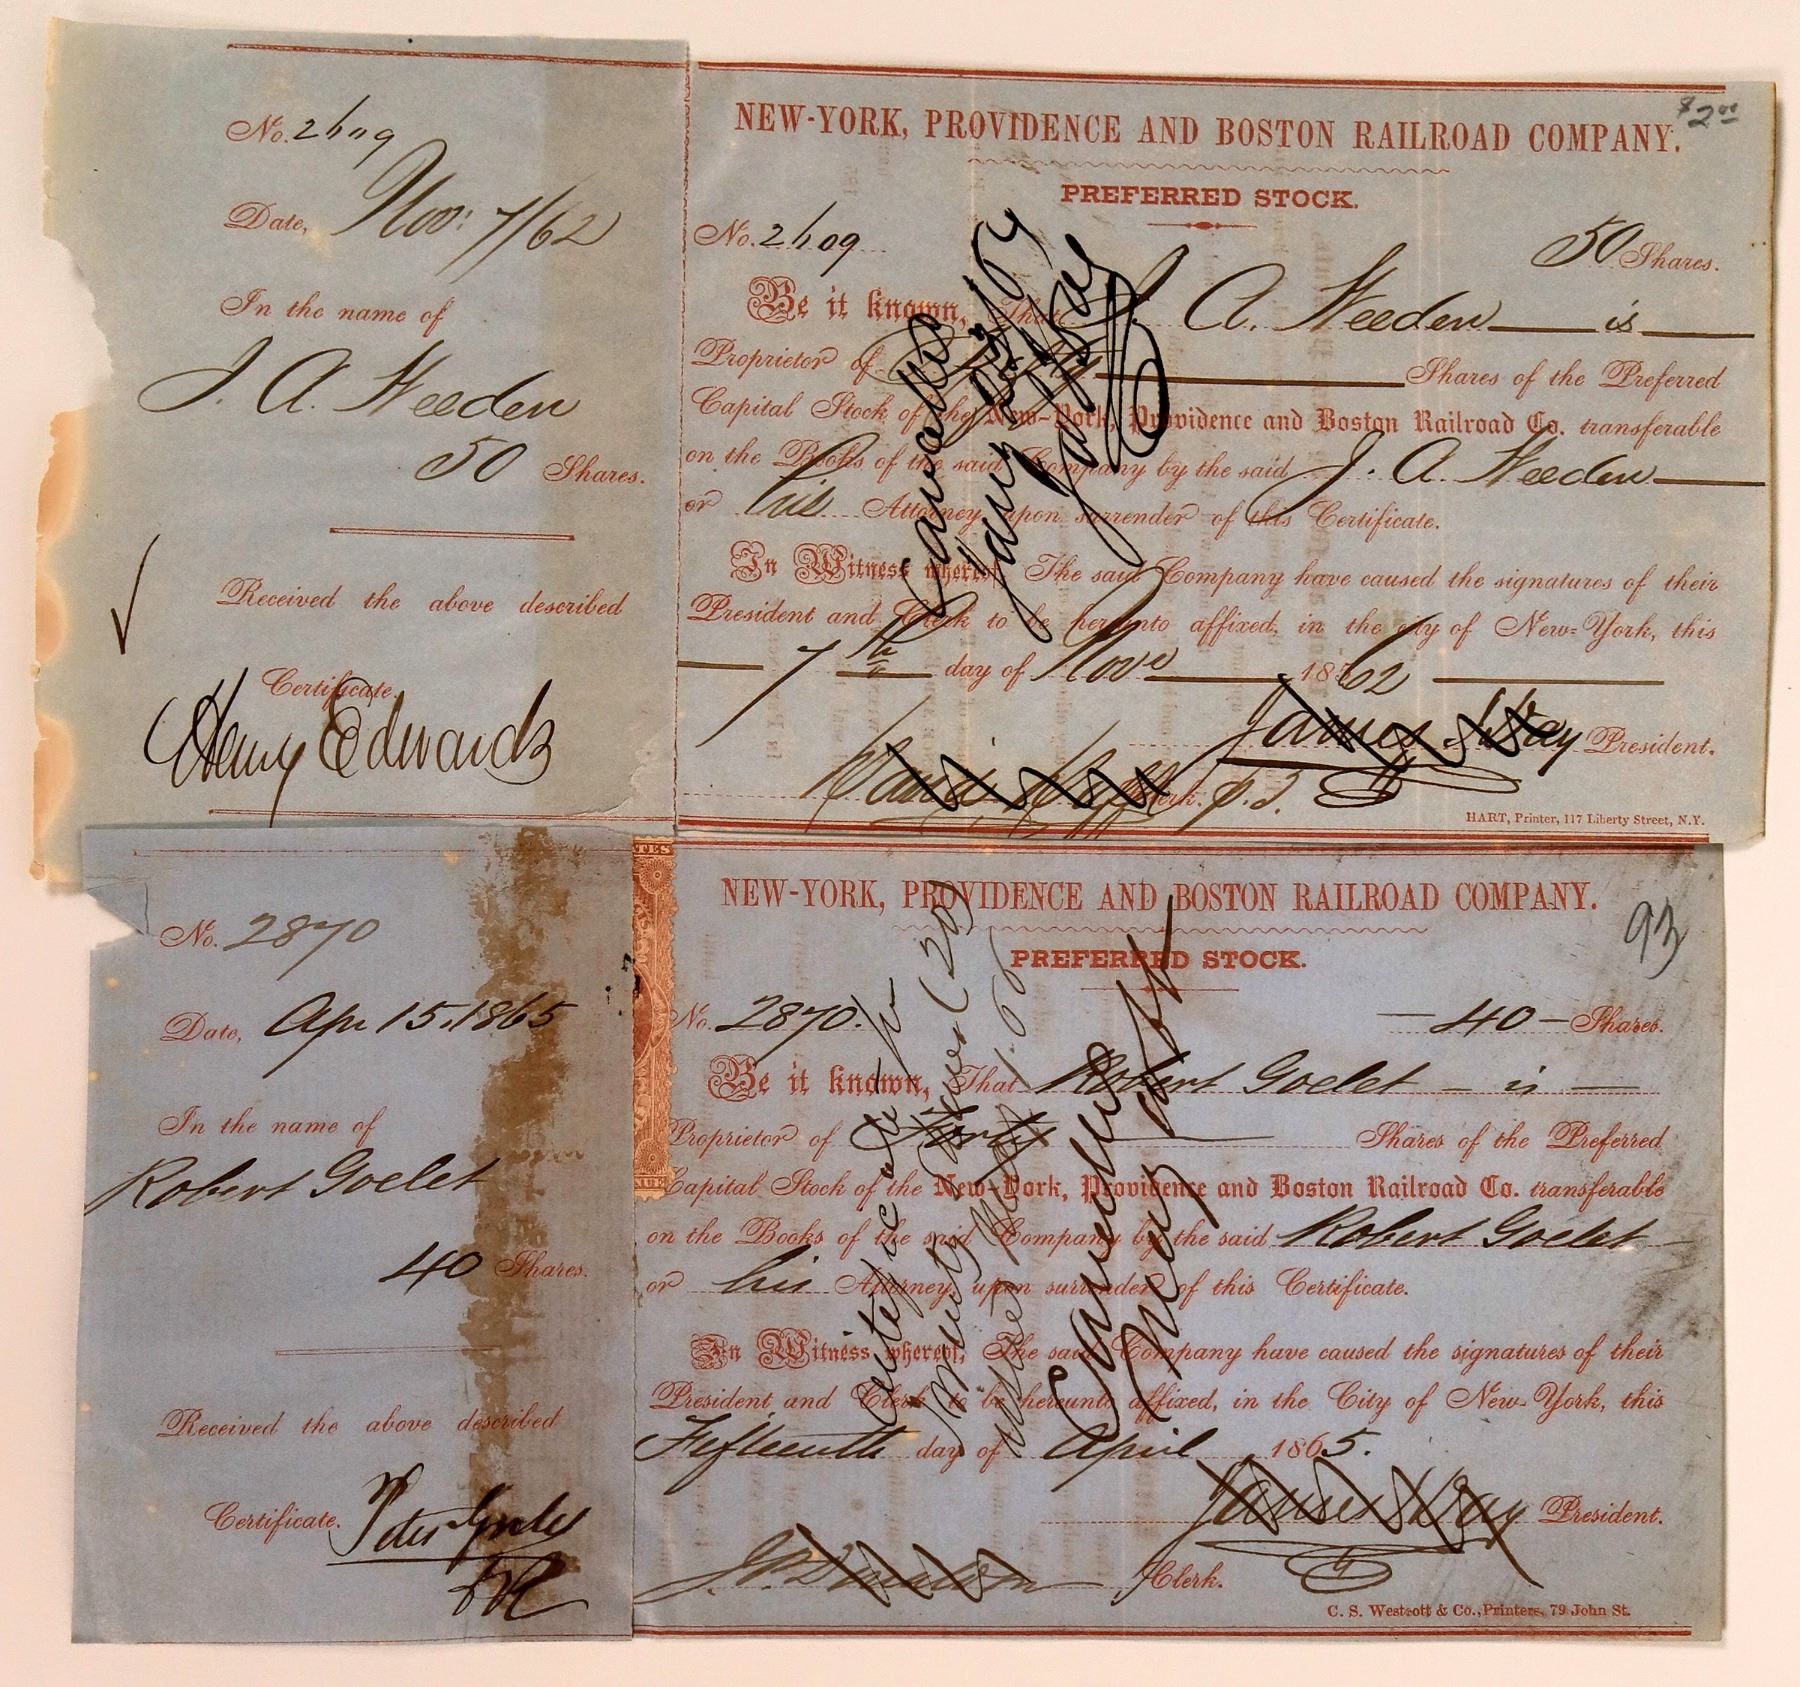 No. 2409
Date, Nov: 7/62
In the name of
J. A. Weeden
50 Shares.
Received the above described
Certificate.
Henry Edwards
$2.00
NEW-YORK, PROVIDENCE AND BOSTON RAILROAD COMPANY.
PREFERRED STOCK.
No. 2409
50 Shares.
Be it known, That J. A. Weeden is
Proprietor of Fifty Shares of the Preferred
Capital Stock of the New-York, Providence and Boston Railroad Co. transferable
on the Books of the said Company by the said J. A. Weeden
or his Attorney upon surrender of this Certificate.
In Witness whereof, The said Company have caused the signatures of their
President and Clerk to be hereunto affixed, in the city of New-York, this
7th day of Nove 1862
President.
Clerk. p. t.
HART, Printer, 117 Liberty Street, N.Y.
Cancelled
No. 2870
Date, Apr 15, 1865
In the name of
Robert Goelet
40 Shares.
Received the above described
Certificate.
93
NEW-YORK, PROVIDENCE AND BOSTON RAILROAD COMPANY.
PREFERRED STOCK.
No. 2870.
40 Shares.
Be it known, That Robert Goelet is
Proprietor of Forty Shares of the Preferred
Capital Stock of the New-York, Providence and Boston Railroad Co. transferable
on the Books of the said Company by the said Robert Goelet
or his Attorney upon surrender of this Certificate.
In Witness whereof, The said Company have caused the signatures of their
President and Clerk to be hereunto affixed, in the City of New-York, this
Fifteenth day of April 1865.
President.
Clerk.
C. S. Westcott & Co., Printers, 79 John St.
Cancelled